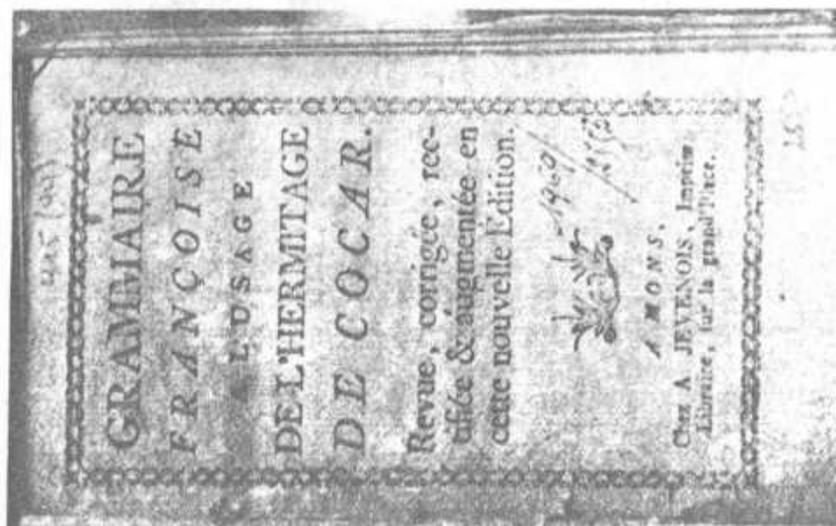 GRAMMAIRE
FRANÇOISE
L'USAGE
DE L'HERMITAGE
DE COCAR.
Revue, corrigée, rec-
tifiée & augmentée en
cette nouvelle Edition.
A MONS,
Chez A JEVENOIS, Imprim.
Libraire, sur la grand'Place.